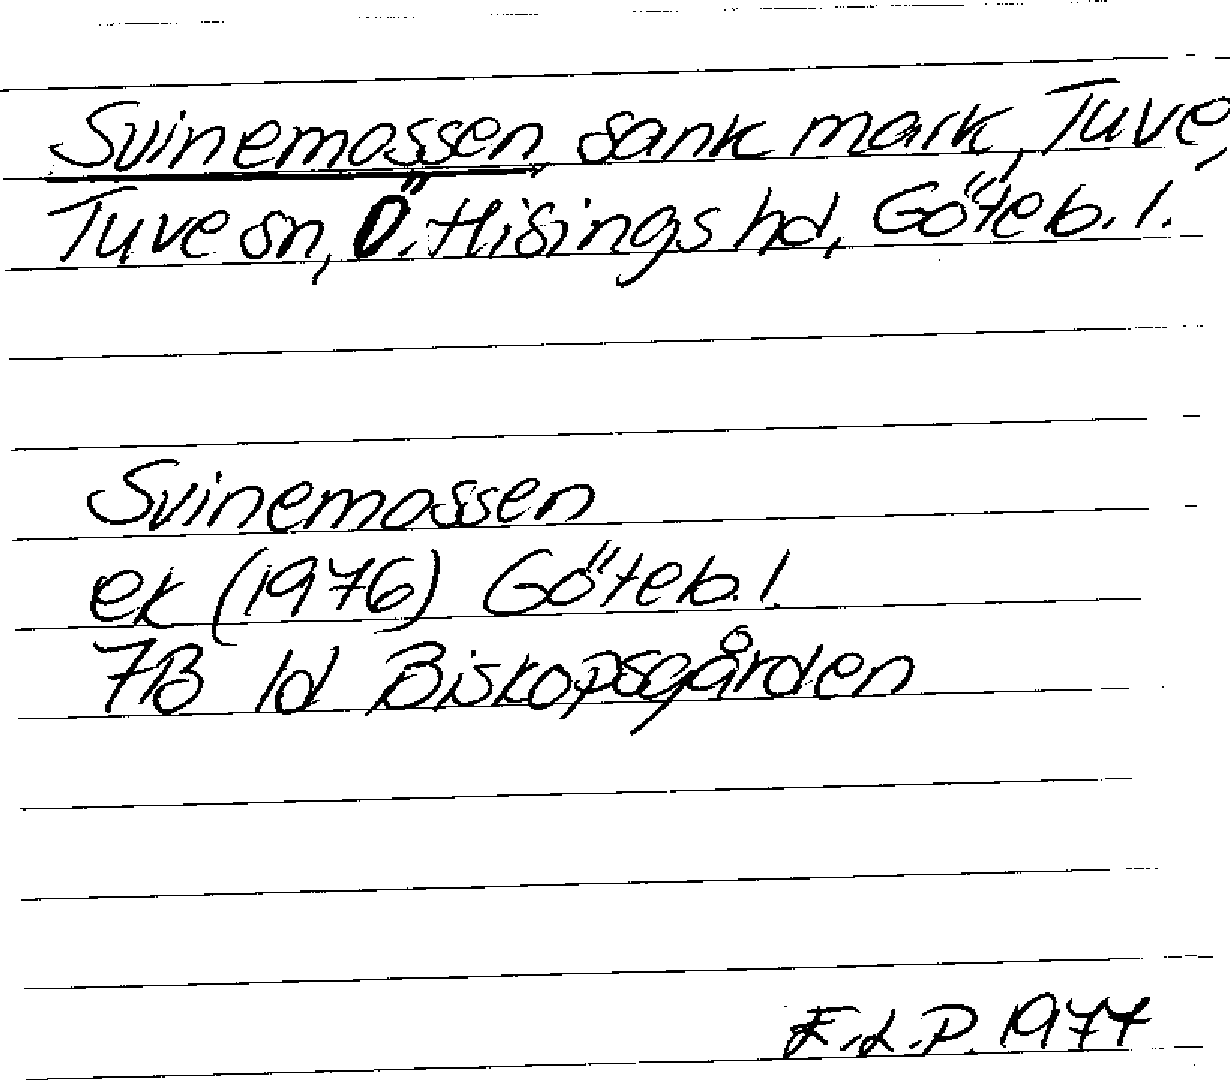 Svinemossen, sank mark, Tuve,
Tuve sn, Ö. Hisings hd, Göteb. l.
Svinemossen
ek (1976) Göteb. l.
7B 1d Biskopsgården
E.L.P. 1977